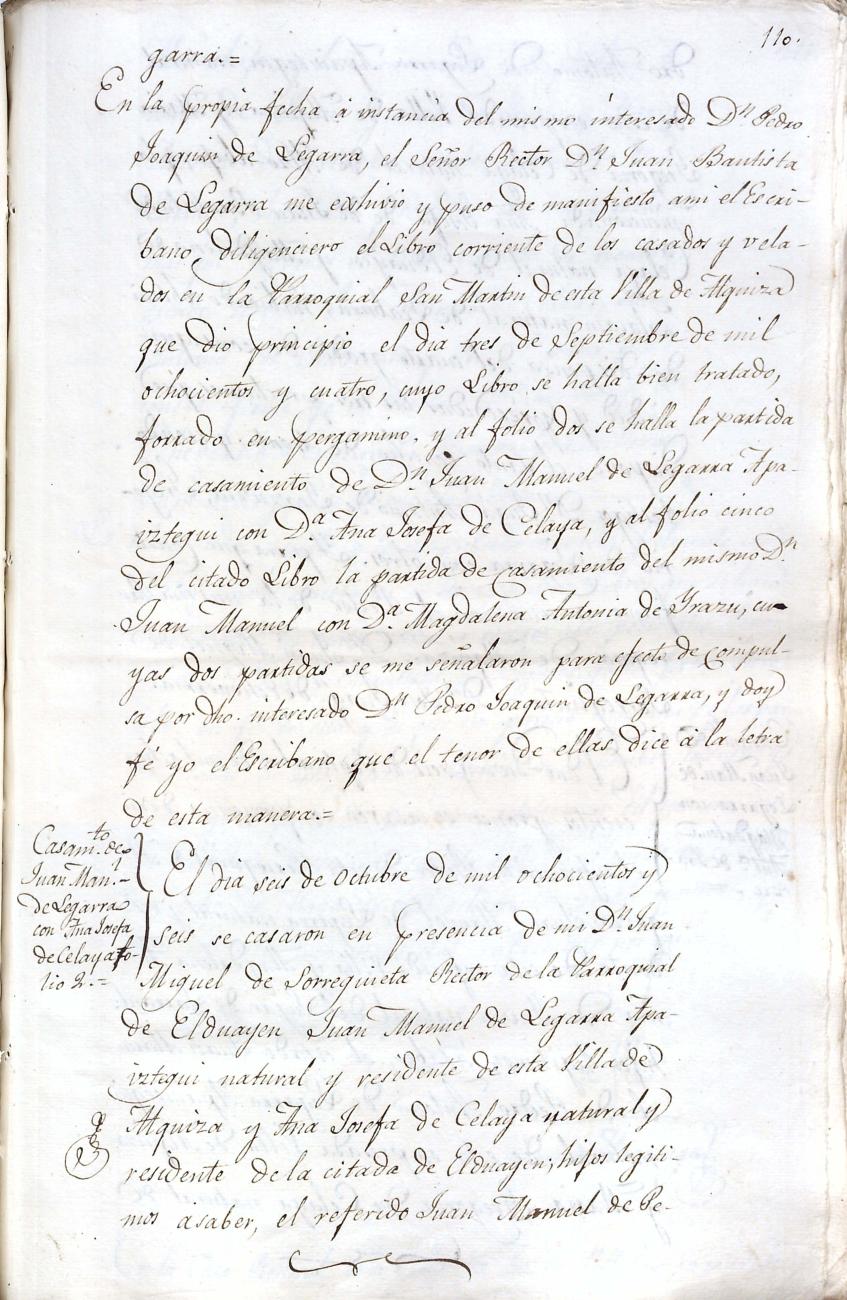 110.
garra.=
En la propia fecha á instancia del mismo interesado Dn Pedro
Joaquin de Legarra, el Señor Rector Dn Juan Bautista
de Legarra me exhivio y puso de manifiesto ami el Escri-
bano diligenciero el Libro corriente de los casados y vela-
dos en la Parroquial San Martin de esta Villa de Alquiza
que dio principio el dia tres de Septiembre de mil
ochocientos y cuatro, cuyo Libro se halla bien tratado,
forrado en pergamino, y al folio dos se halla la partida
de casamiento de Dn Juan Manuel de Legarra Apa-
iztegui con Da. Ana Josefa de Celaya, y al folio cinco
del citado Libro la partida de casamiento del mismo Dn
Juan Manuel con Da. Magdalena Antonia de Yrazu, cu-
yas dos partidas se me señalaron para efecto de compul-
sa por dho. interesado Dn Pedro Joaquin de Legarra, y doy
fé yo el Escribano que el tenor de ellas dice á la letra
de esta manera.=
Casam.to de
Juan Man.l
de Legarra
con Ana Josefa
de Celaya fo-
lio 2.=
El dia seis de Octubre de mil ochocientos y
seis se casaron en presencia de mi Dn Juan
Miguel de Sorreguieta Rector de la Parroquial
de Elduayen Juan Manuel de Legarra Apa-
iztegui natural y residente de esta Villa de
Alquiza y Ana Josefa de Celaya natural y
residente de la citada de Elduayen, hijos legiti-
mos asaber, el referido Juan Manuel de Pe-